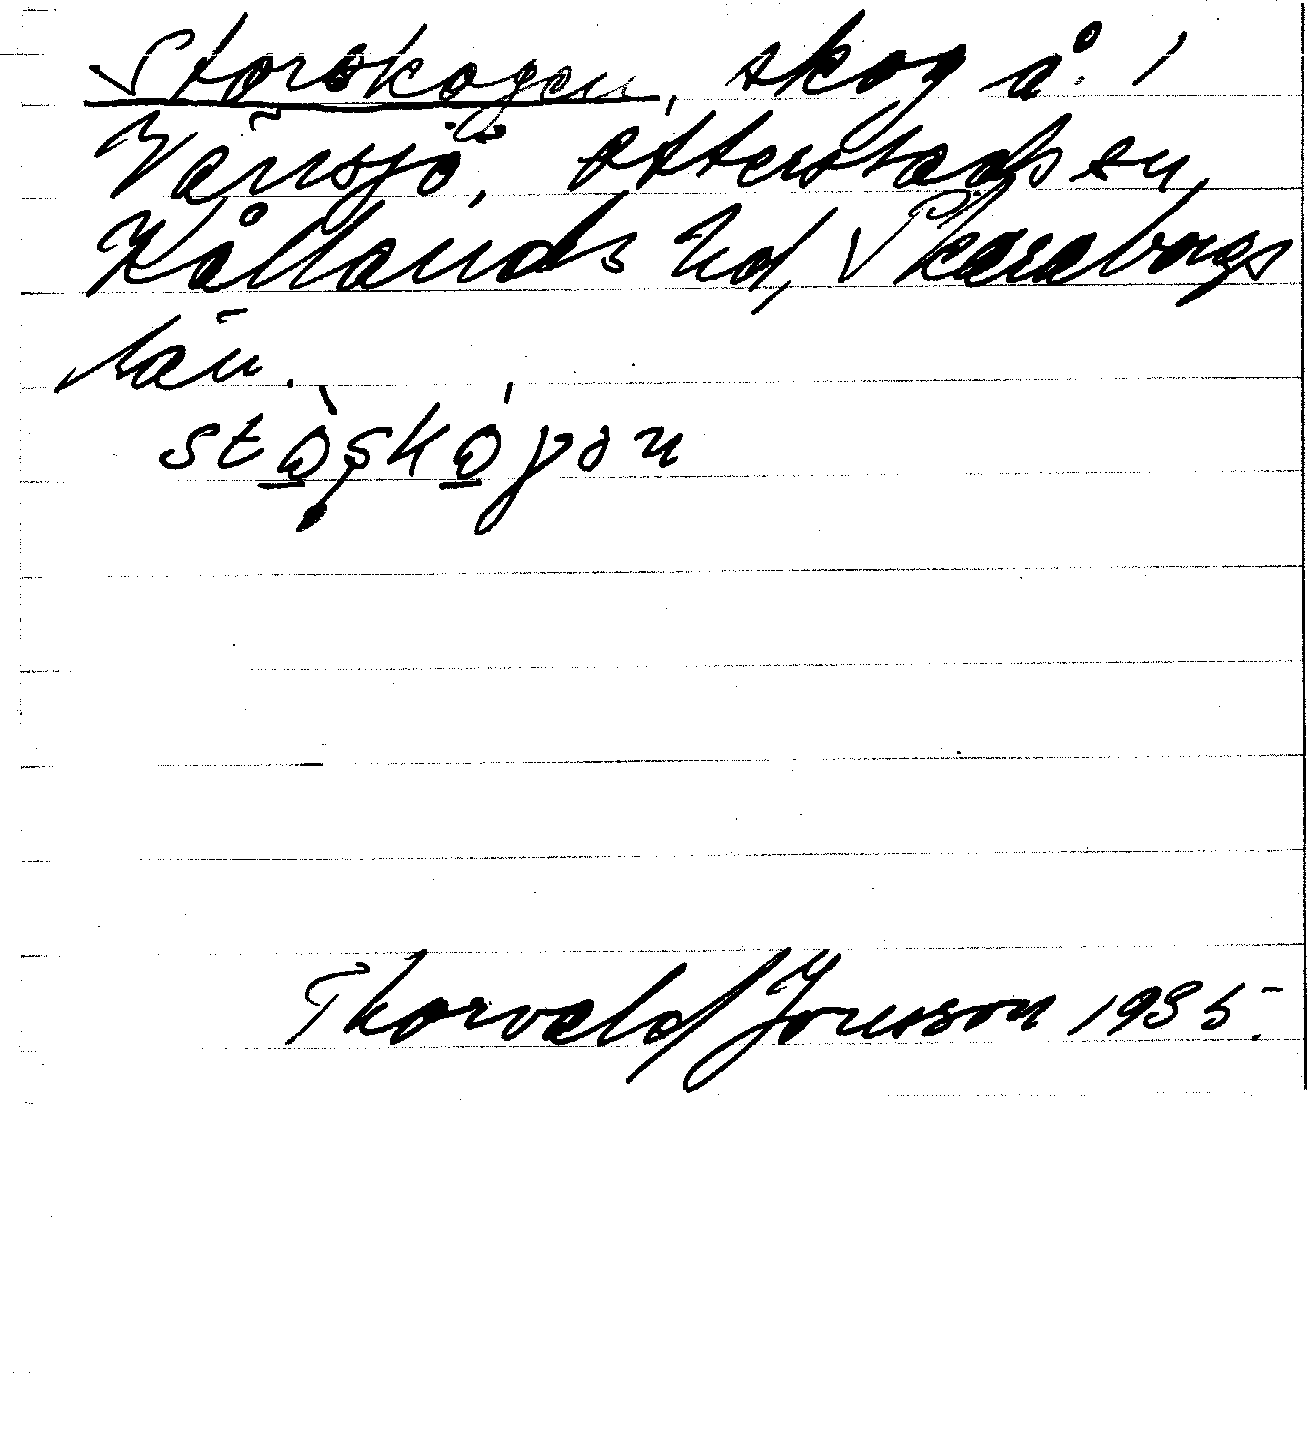 Storskogen, skog å 1
Vänsjö, Otterstads sn,
Kållands hd, Skaraborgs
län.
Thorvald Jonsson 1935.